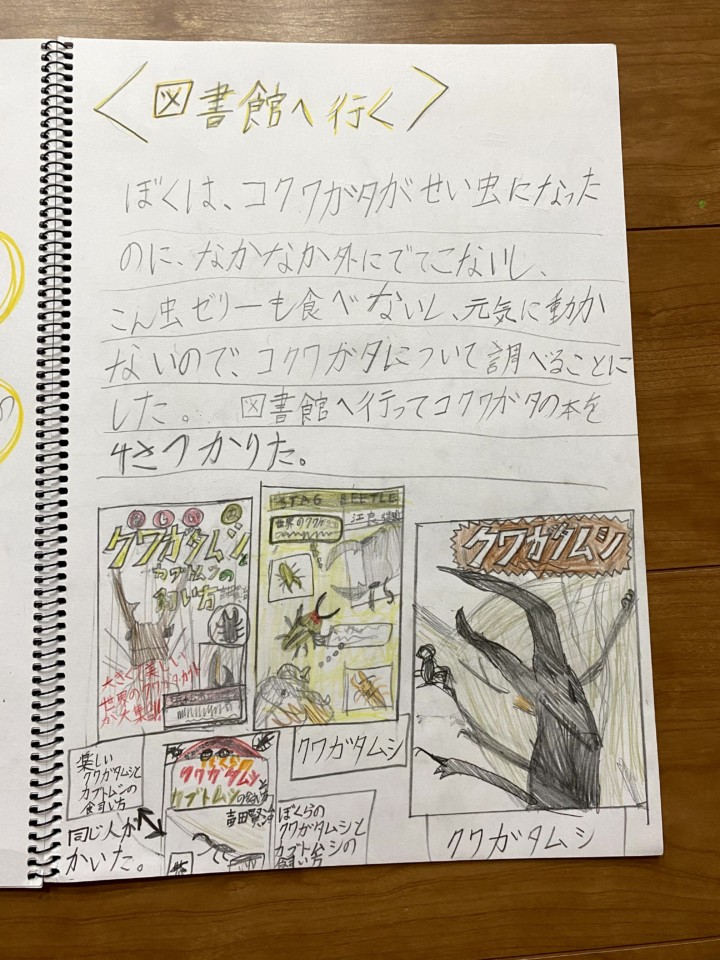 <図書館へ行く>
ぼくは、コクワガタがせい虫になった
のに、なかなか外にでてこないし、
こん虫ゼリーも食べないし、元気に動か
ないので、コクワガタについて調べることに
した。 図書館へ行ってコクワガタの本を
4さつかりた。
クワガタムシと
カブトムシの
飼い方
大きくて美しい
世界のクワガタ・カブト
が大集合!!
STAG BEETLE
世界のクワガタ
クワガタムシ
クワガタムシ
クワガタムシ
楽しい
クワガタムシと
カブトムシの
飼い方
同じ人が
かいた。
ぼくらの
クワガタムシと
カブトムシの飼い方
吉田賢治
ぼくらの
クワガタムシと
カブトムシの
飼い方